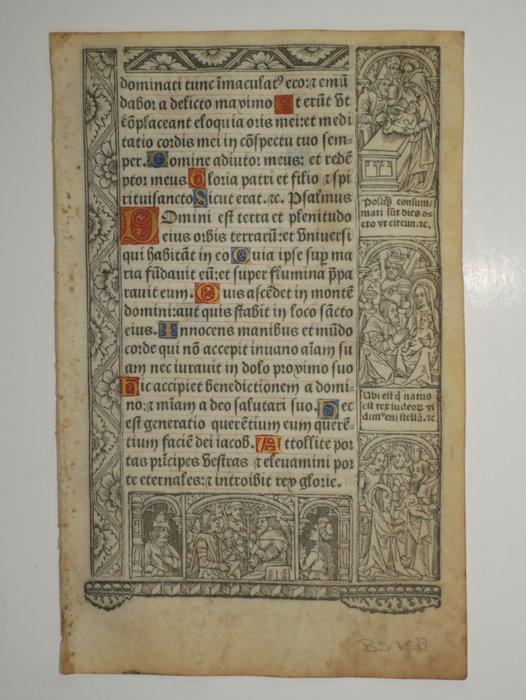 dominati tunc īmaculatꝰ ero: ⁊ emū
dabor a delicto maximo Et erūt vt
cōplaceant eloquia oris mei: et medi
tatio cordis mei in cōspectu tuo sem-
per. Domine adiutor meus: et redē
ptor meus Gloria patri et filio ⁊ spi
rituisancto Sicut erat. ⁊c. Psalmus
Domini est terra et plenitudo
eius orbis terrarū: et vniuersi
qui habitāt in eo Quia ipse suꝑ ma
ria fūdauit eū: et super flumina p̄pa
rauit eum. Quis ascēdet in montē
domini: aut quis stabit in loco sācto
eius. Innocens manibus et mūdo
corde qui nō accepit inuano aīam su
am nec iurauit in dolo proximo suo
Hic accipiet benedictionem a domi-
no: ⁊ mīam a deo salutari suo. Hec
est generatio querētium eum querē-
tium faciē dei iacob. Attollite por
tas prīcipes vestras ⁊ eleuamini por
te eternales: ⁊ introibit rex glorie.
Postq̄ consum/
mati sūt dies o-
cto vt circun. ⁊c.
Ubi est q̄ natus
est rex iudeoꝝ vi
dimꝰ enī stellā. ⁊c